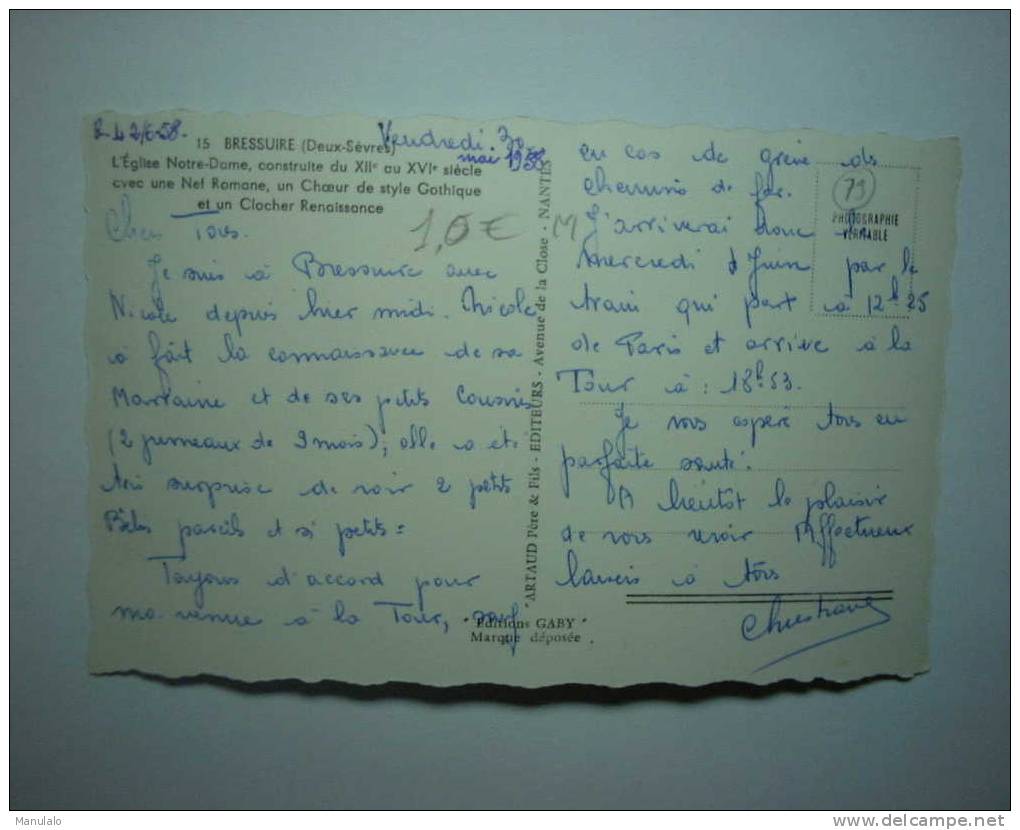 15 BRESSUIRE (Deux-Sèvres)
L'Église Notre-Dame, construite du XIIe au XVIe siècle
avec une Nef Romane, un Chœur de style Gothique
et un Clocher Renaissance
Vendredi 30
mai 1958
1,0€ M
Chers Tous.
Je suis à Bressuire avec
Nicole depuis hier midi. Nicole
a fait la connaissance de sa
Marraine et de ses petits Cousins
(2 jumeaux de 9 mois); elle a été
très surprise de voir 2 petits
Bébés pareils et si petits
Toujours d'accord pour
ma venue à la Tour, sauf
"Editions GABY"
Marque déposée
"ARTAUD Père & Fils - EDITEURS - Avenue de la Close - NANTES
79
PHOTOGRAPHIE
VÉRITABLE
en cas de grève des
chemins de fer.
J'arriverai donc le
Mercredi Juin par le
train qui part à 12h25
de Paris et arrive à la
Tour à : 18h53.
Je vous espère tous en
parfaite santé.
A bientôt le plaisir
de vous revoir Affectueux
baisers à tous
Christiane
Manulalo
www.delcampe.net